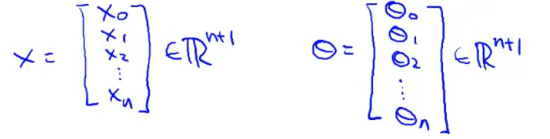 x = [x₀ x₁ x₂ ⋮ xₙ] ∈ ℝⁿ⁺¹
θ = [θ₀ θ₁ θ₂ ⋮ θₙ] ∈ ℝⁿ⁺¹